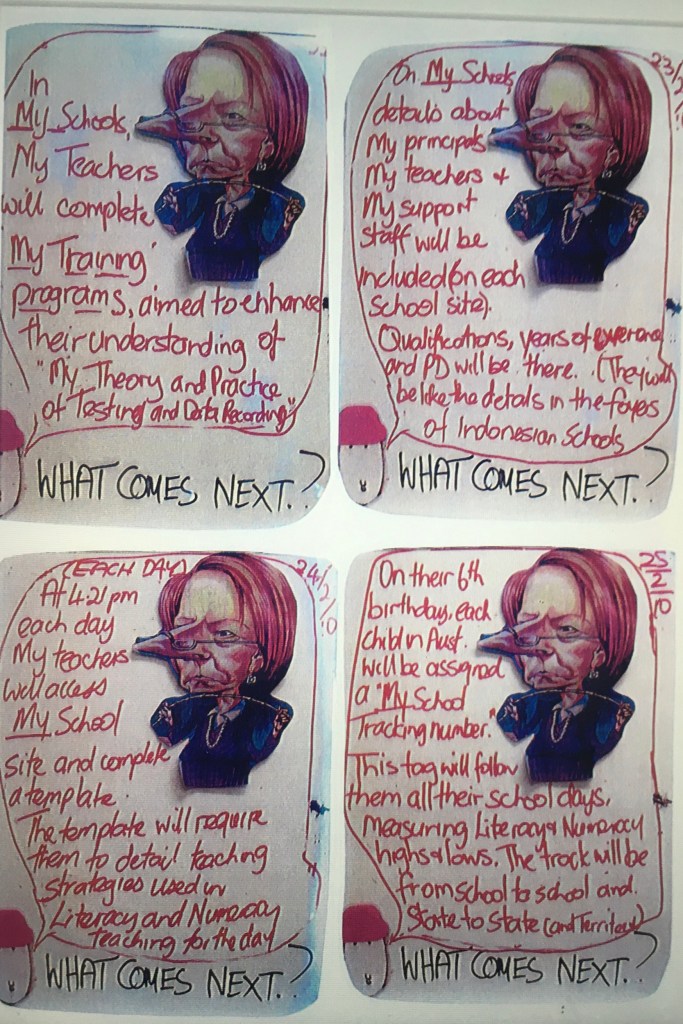 In
My Schools,
My Teachers
will complete
My Training
programs, aimed to enhance
their understanding of
"My Theory and Practice
of Testing and Data Recording"
WHAT COMES NEXT.?
23/2/10
On My Schools,
details about
My principals
My teachers &
My support
staff will be
included (on each
school site).
Qualifications, years of
and PD will be there. (They will
be like the details in the foyers
of Indonesian Schools
WHAT COMES NEXT.?
(EACH DAY)
24/2/10
At 4.21 pm
each day
My teachers
will access
My School
site and complete
a template.
The template will require
them to detail teaching
strategies used in
Literacy and Numeracy
teaching for the day
WHAT COMES NEXT.?
On their 6th
birthday, each
child in Aust.
will be assigned
a "My School
Tracking number."
This tag will follow
them all their school days,
measuring Literacy & Numeracy
highs & lows. The track will be
from school to school and
State to State (and Territory)
WHAT COMES NEXT.?